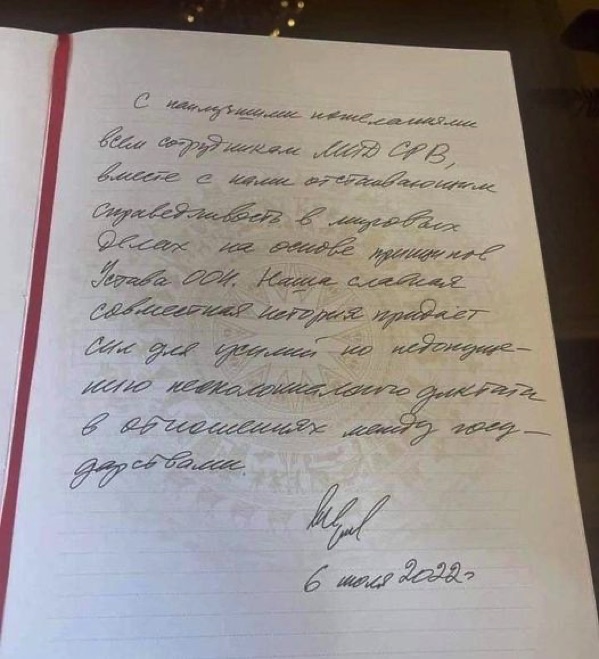 С наилучшими пожеланиями
всем сотрудникам МИД СРВ,
вместе с нами отстаивающим
справедливость в мировых
делах на основе принципов
Устава ООН. Наша славная
совместная история придаёт
сил для усилий по недопуще-
нию неоколониального диктата
в отношениях между госу-
дарствами.
6 июля 2022 г